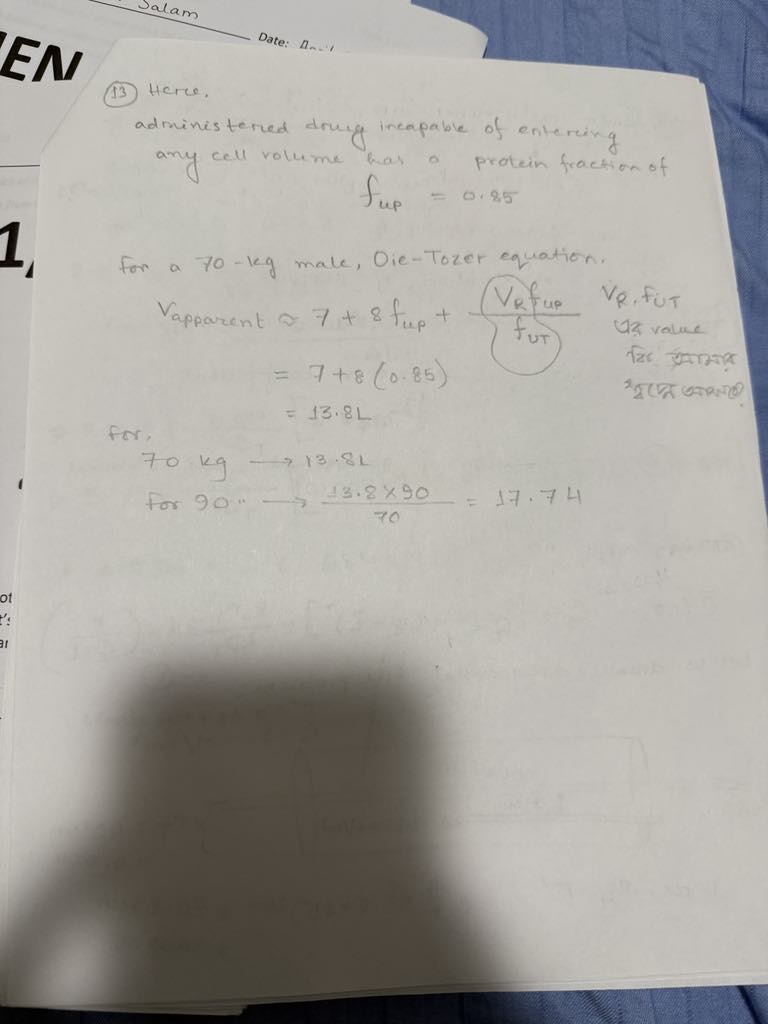 Salam
Date:
EN
13 Here,
administered drug incapable of entering
any cell volume has a protein fraction of
fup = 0.85
For a 70-kg male, Oie-Tozer equation,
Vapparent ≈ 7 + 8fup + VR fup / fUT
VR, fUT
এর value
কি আমার
= 7+8(0.85)
= 13.8L
for,
70 kg → 13.8L
for 90 " → 13.8×90 / 70 = 17.74
1
ot
t's
ar